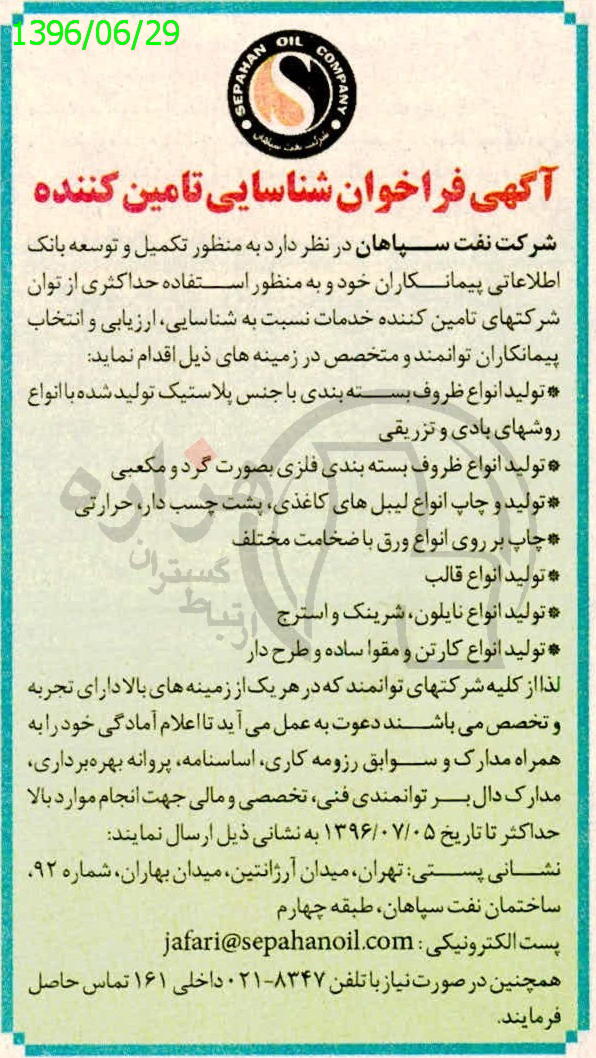 1396/06/29
SEPAHAN OIL COMPANY
شرکت نفت سپاهان
آگهی فراخوان شناسایی تامین کننده
شرکت نفت سپاهان در نظر دارد به منظور تکمیل و توسعه بانک
اطلاعاتی پیمانکاران خود و به منظور استفاده حداکثری از توان
شرکتهای تامین کننده خدمات نسبت به شناسایی، ارزیابی و انتخاب
پیمانکاران توانمند و متخصص در زمینه های ذیل اقدام نماید:
*تولید انواع ظروف بسته بندی با جنس پلاستیک تولید شده با انواع
روشهای بادی و تزریقی
*تولید انواع ظروف بسته بندی فلزی بصورت گرد و مکعبی
*تولید و چاپ انواع لیبل های کاغذی، پشت چسب دار، حرارتی
*چاپ بر روی انواع ورق با ضخامت مختلف
*تولید انواع قالب
*تولید انواع نایلون، شرینک و استرج
*تولید انواع کارتن و مقوا ساده و طرح دار
لذا از کلیه شرکتهای توانمند که در هر یک از زمینه های بالا دارای تجربه
و تخصص می باشند دعوت به عمل می آید تا اعلام آمادگی خود را به
همراه مدارک و سوابق رزومه کاری، اساسنامه، پروانه بهره‌برداری،
مدارک دال بر توانمندی فنی، تخصصی و مالی جهت انجام موارد بالا
حداکثر تا تاریخ ۱۳۹۶/۰۷/۰۵ به نشانی ذیل ارسال نمایند:
نشانی پستی: تهران، میدان آرژانتین، میدان بهاران، شماره ۹۲،
ساختمان نفت سپاهان، طبقه چهارم
پست الکترونیکی: jafari@sepahanoil.com
همچنین در صورت نیاز با تلفن ۸۳۴۷-۰۲۱ داخلی ۱۶۱ تماس حاصل
فرمایند.
هزاره
گستران
ارتباط